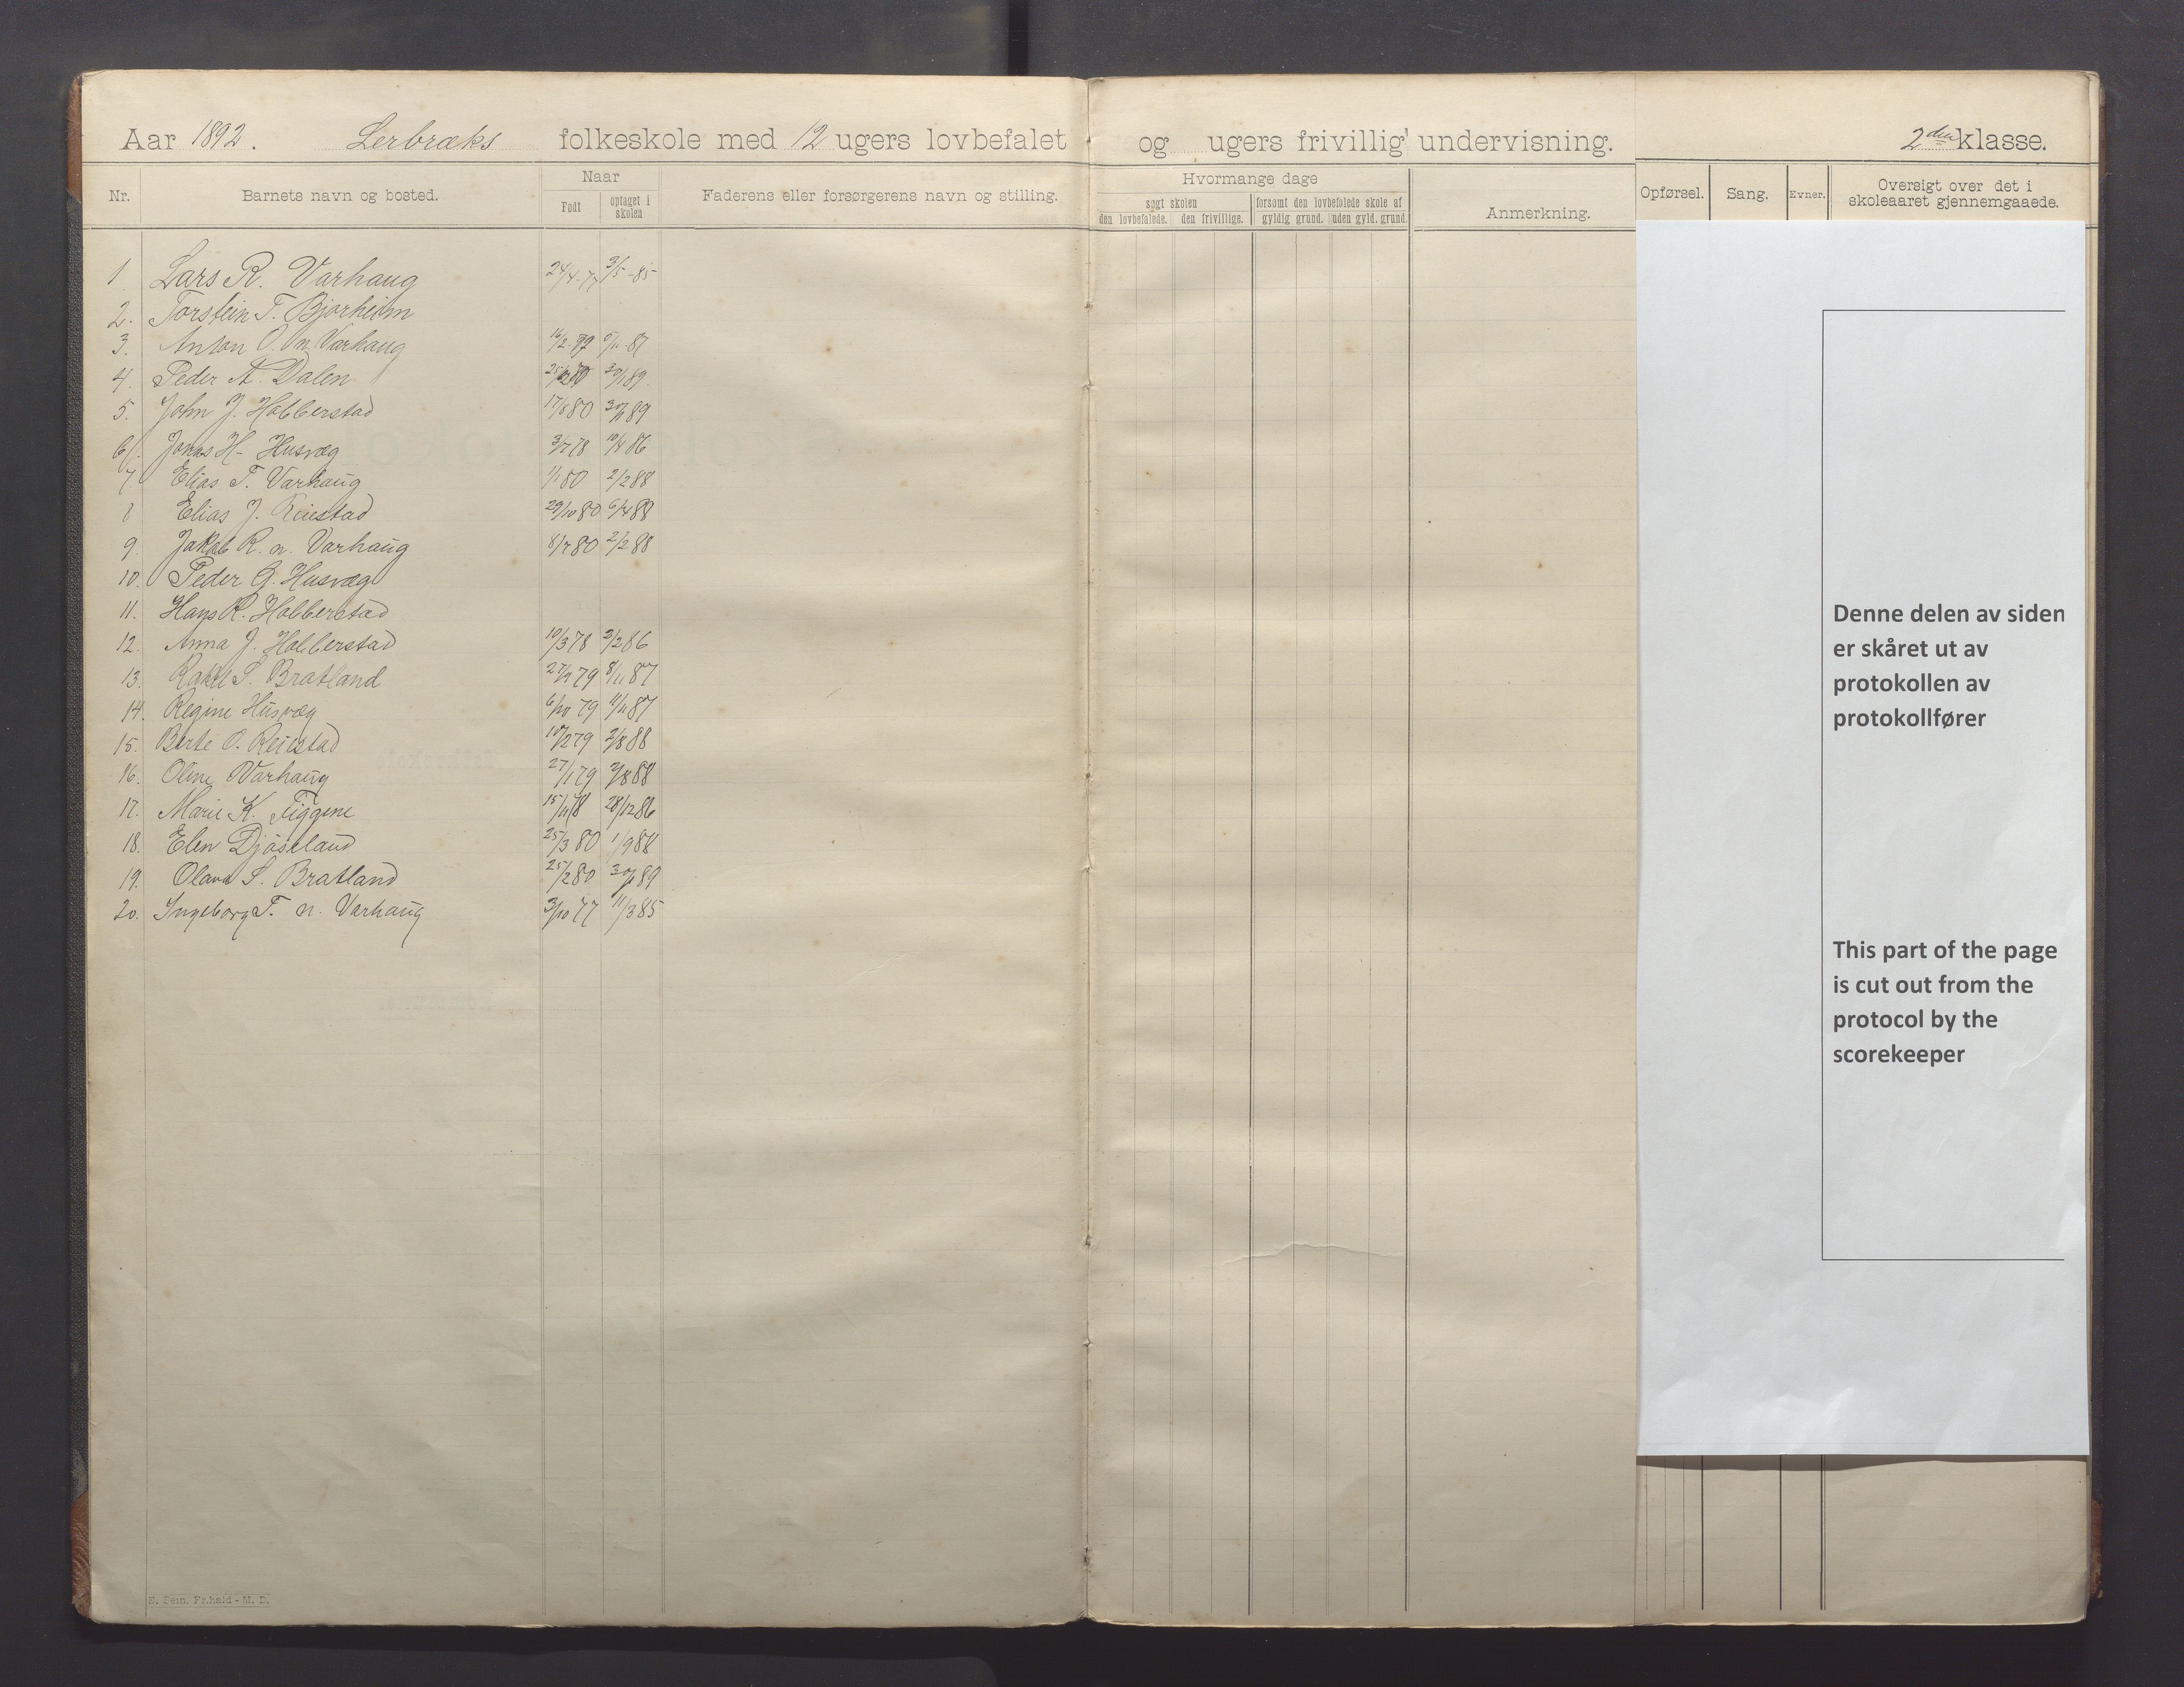 Aar 1892. Lerbræks folkeskole med 12 ugers lovbefalet og ugers frivillig undervisning. 2den klasse.
Nr. Barnets navn og bosted. Naar Født optaget i skolen Faderens eller forsørgerens navn og stilling. Hvormange dage søgt skolen den lovbefalede. den frivillige. forsømt den lovbefalede skole af gyldig grund. uden gyld. grund. Anmerkning. Opførsel. Sang. Evner. Oversigt over det i skoleaaret gjennemgaaede.
1 Lars R. Varhaug 24/4-77 3/5-85
2. Torstein T. Bjorheim
3. Anton O. n. Varhaug 16/2-79 5/11-87
4. Peder A. Dalen 30/1 89
5. John J. Hobberstad 17/8 80 30/1 89
6. Jonas H. Husvæg 3/7 78 10/4 86
7 Elias T. Varhaug 1/1 80 2/2 88
8 Elias J. Reiestad 29/10 80 6/4 88
9. Jakob R. n. Varhaug 8/7 80 2/2 88
10. Peder G. Husvæg
11. Hans R. Hobberstad
12. Anna J. Hobberstad 10/3 78 3/2 86
13. Rakel S. Bratland 27/7 79 8/11 87
14. Regine Husvæg 6/10 79 11/11 87
15. Berte O. Reiestad 10/2 79 2/8 88
16. Oline Varhaug 27/1 79 2/8 88
17. Marie K. Tiggene 15/11 78 28/12 86
18. Elen Djøseland 25/3 80 1/9 88
19. Olava S. Bratland 25/2 80 30/1 89
20. Ingeborg T. n. Varhaug 3/10 77 11/3 85
Denne delen av siden
er skåret ut av
protokollen av
protokollfører
This part of the page
is cut out from the
protocol by the
scorekeeper
E. Sem. Fr.hald - M. D.